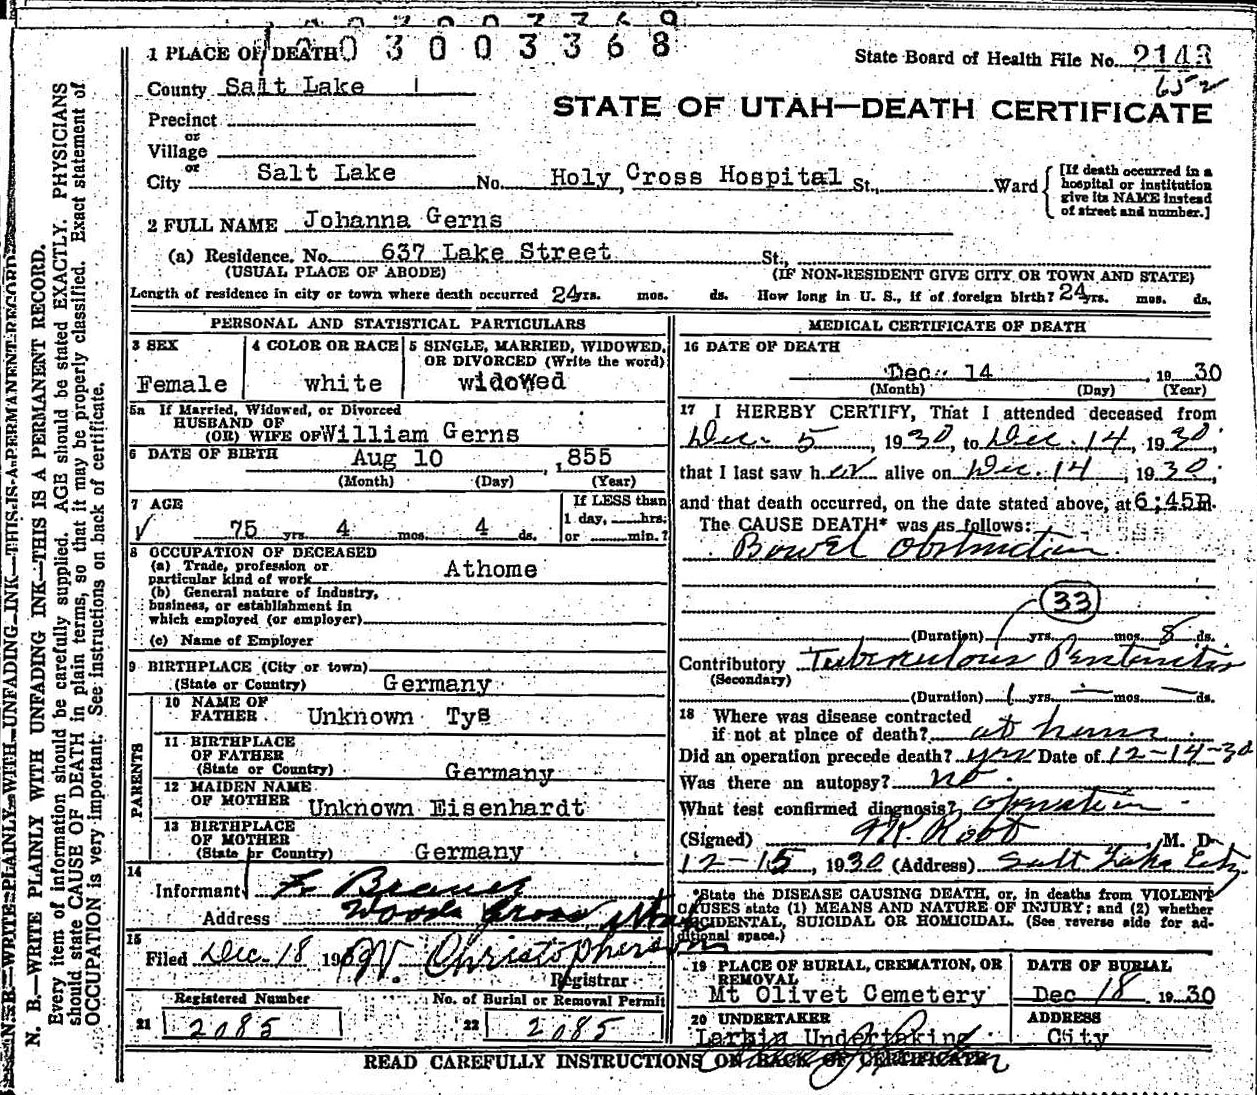 2030033 68
1 PLACE OF DEATH
State Board of Health File No. 2143
652
County Salt Lake
STATE OF UTAH—DEATH CERTIFICATE
Precinct
or
Village
or
City Salt Lake No. Holy Cross Hospital St., Ward
[If death occurred in a hospital or institution give its NAME instead of street and number.]
2 FULL NAME Johanna Gerns
(a) Residence. No. 637 Lake Street St.,
(USUAL PLACE OF ABODE) (IF NON-RESIDENT GIVE CITY OR TOWN AND STATE)
Length of residence in city or town where death occurred 24 yrs. mos. ds. How long in U. S., if of foreign birth? 24 yrs. mos. ds.
PERSONAL AND STATISTICAL PARTICULARS
3 SEX
Female
4 COLOR OR RACE
white
5 SINGLE, MARRIED, WIDOWED,
OR DIVORCED (Write the word)
widowed
5a If Married, Widowed, or Divorced
HUSBAND OF
(OR) WIFE OF William Gerns
6 DATE OF BIRTH Aug 10 , 1855
(Month) (Day) (Year)
7 AGE
75 yrs. 4 mos. 4 ds.
If LESS than
1 day, hrs.
or min.?
8 OCCUPATION OF DECEASED
(a) Trade, profession or
particular kind of work Athome
(b) General nature of industry,
business, or establishment in
which employed (or employer)
(c) Name of Employer
9 BIRTHPLACE (City or town)
(State or Country) Germany
PARENTS
10 NAME OF
FATHER Unknown Tys
11 BIRTHPLACE
OF FATHER
(State or Country) Germany
12 MAIDEN NAME
OF MOTHER Unknown Eisenhardt
13 BIRTHPLACE
OF MOTHER
(State or Country) Germany
14
Informant
Address Woods Cross, Utah
15
Filed Dec. 18 19 W. Christopherson
Registrar
Registered Number
21 2085
No. of Burial or Removal Permit
22 2085
MEDICAL CERTIFICATE OF DEATH
16 DATE OF DEATH
Dec. 14 , 1930
(Month) (Day) (Year)
17 I HEREBY CERTIFY, That I attended deceased from
Dec. 5, 1930, to Dec. 14, 1930.
that I last saw her alive on Dec. 14, 1930,
and that death occurred, on the date stated above, at 6:45 P m.
The CAUSE DEATH* was as follows:
Bowel Obstruction
33
(Duration) yrs. mos. 8 ds.
Contributory Tuberculous Peritonitis
(Secondary)
(Duration) 1 yrs. — mos. — ds.
18 Where was disease contracted
if not at place of death? at home
Did an operation precede death? yes Date of 12-14-30
Was there an autopsy? no.
What test confirmed diagnosis? operation
(Signed) M. D.
12-15, 1930 (Address) Salt Lake City
*State the DISEASE CAUSING DEATH, or, in deaths from VIOLENT
CAUSES state (1) MEANS AND NATURE OF INJURY; and (2) whether
ACCIDENTAL, SUICIDAL OR HOMICIDAL. (See reverse side for ad-
ditional space.)
19 PLACE OF BURIAL, CREMATION, OR
REMOVAL
Mt Olivet Cemetery
DATE OF BURIAL
Dec 18 1930
20 UNDERTAKER
Larkin Undertaking
ADDRESS
City
READ CAREFULLY INSTRUCTIONS ON BACK OF CERTIFICATE
N. B.—WRITE PLAINLY WITH UNFADING INK—THIS IS A PERMANENT RECORD
N. B.—WRITE PLAINLY WITH UNFADING INK—THIS IS A PERMANENT RECORD.
Every item of information should be carefully supplied. AGE should be stated EXACTLY. PHYSICIANS
should state CAUSE OF DEATH in plain terms, so that it may be properly classified. Exact statement of
OCCUPATION is very important. See instructions on back of certificate.